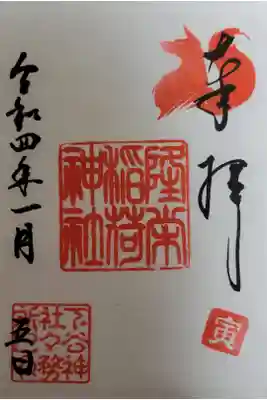 奉拝
寅
隆栄
稲荷
神社
令和四年一月五日
下谷神
社々務